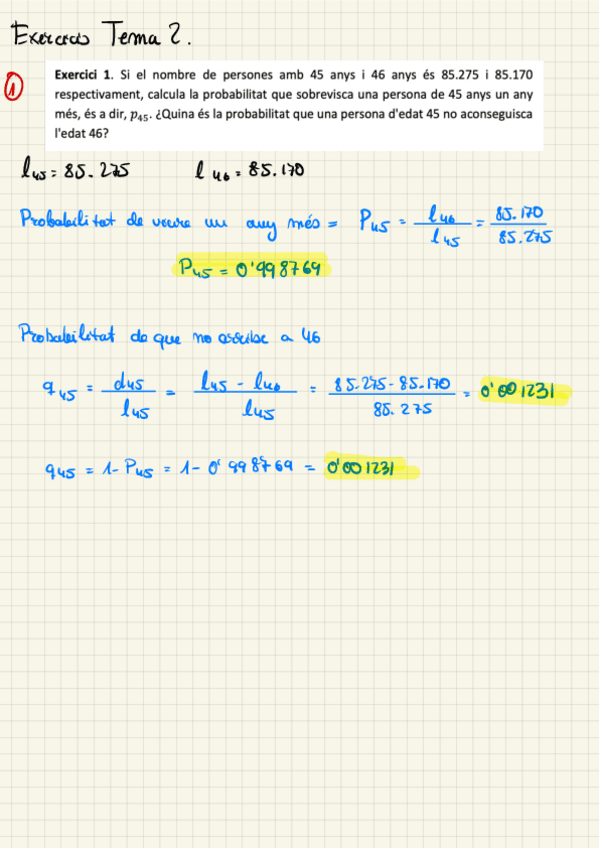 Exercicis Tema 2.
1
Exercici 1. Si el nombre de persones amb 45 anys i 46 anys és 85.275 i 85.170
respectivament, calcula la probabilitat que sobrevisca una persona de 45 anys un any
més, és a dir, p₄₅. ¿Quina és la probabilitat que una persona d'edat 45 no aconseguisca
l'edat 46?
l₄₅ = 85.275 l₄₆ = 85.170
Probabilitat de viure un any més = P₄₅ = l₄₆ / l₄₅ = 85.170 / 85.275
P₄₅ = 0'998769
Probabilitat de que no arribe a 46
q₄₅ = d₄₅ / l₄₅ = l₄₅ - l₄₆ / l₄₅ = 85.275 - 85.170 / 85.275 = 0'001231
q₄₅ = 1 - P₄₅ = 1 - 0'998769 = 0'001231